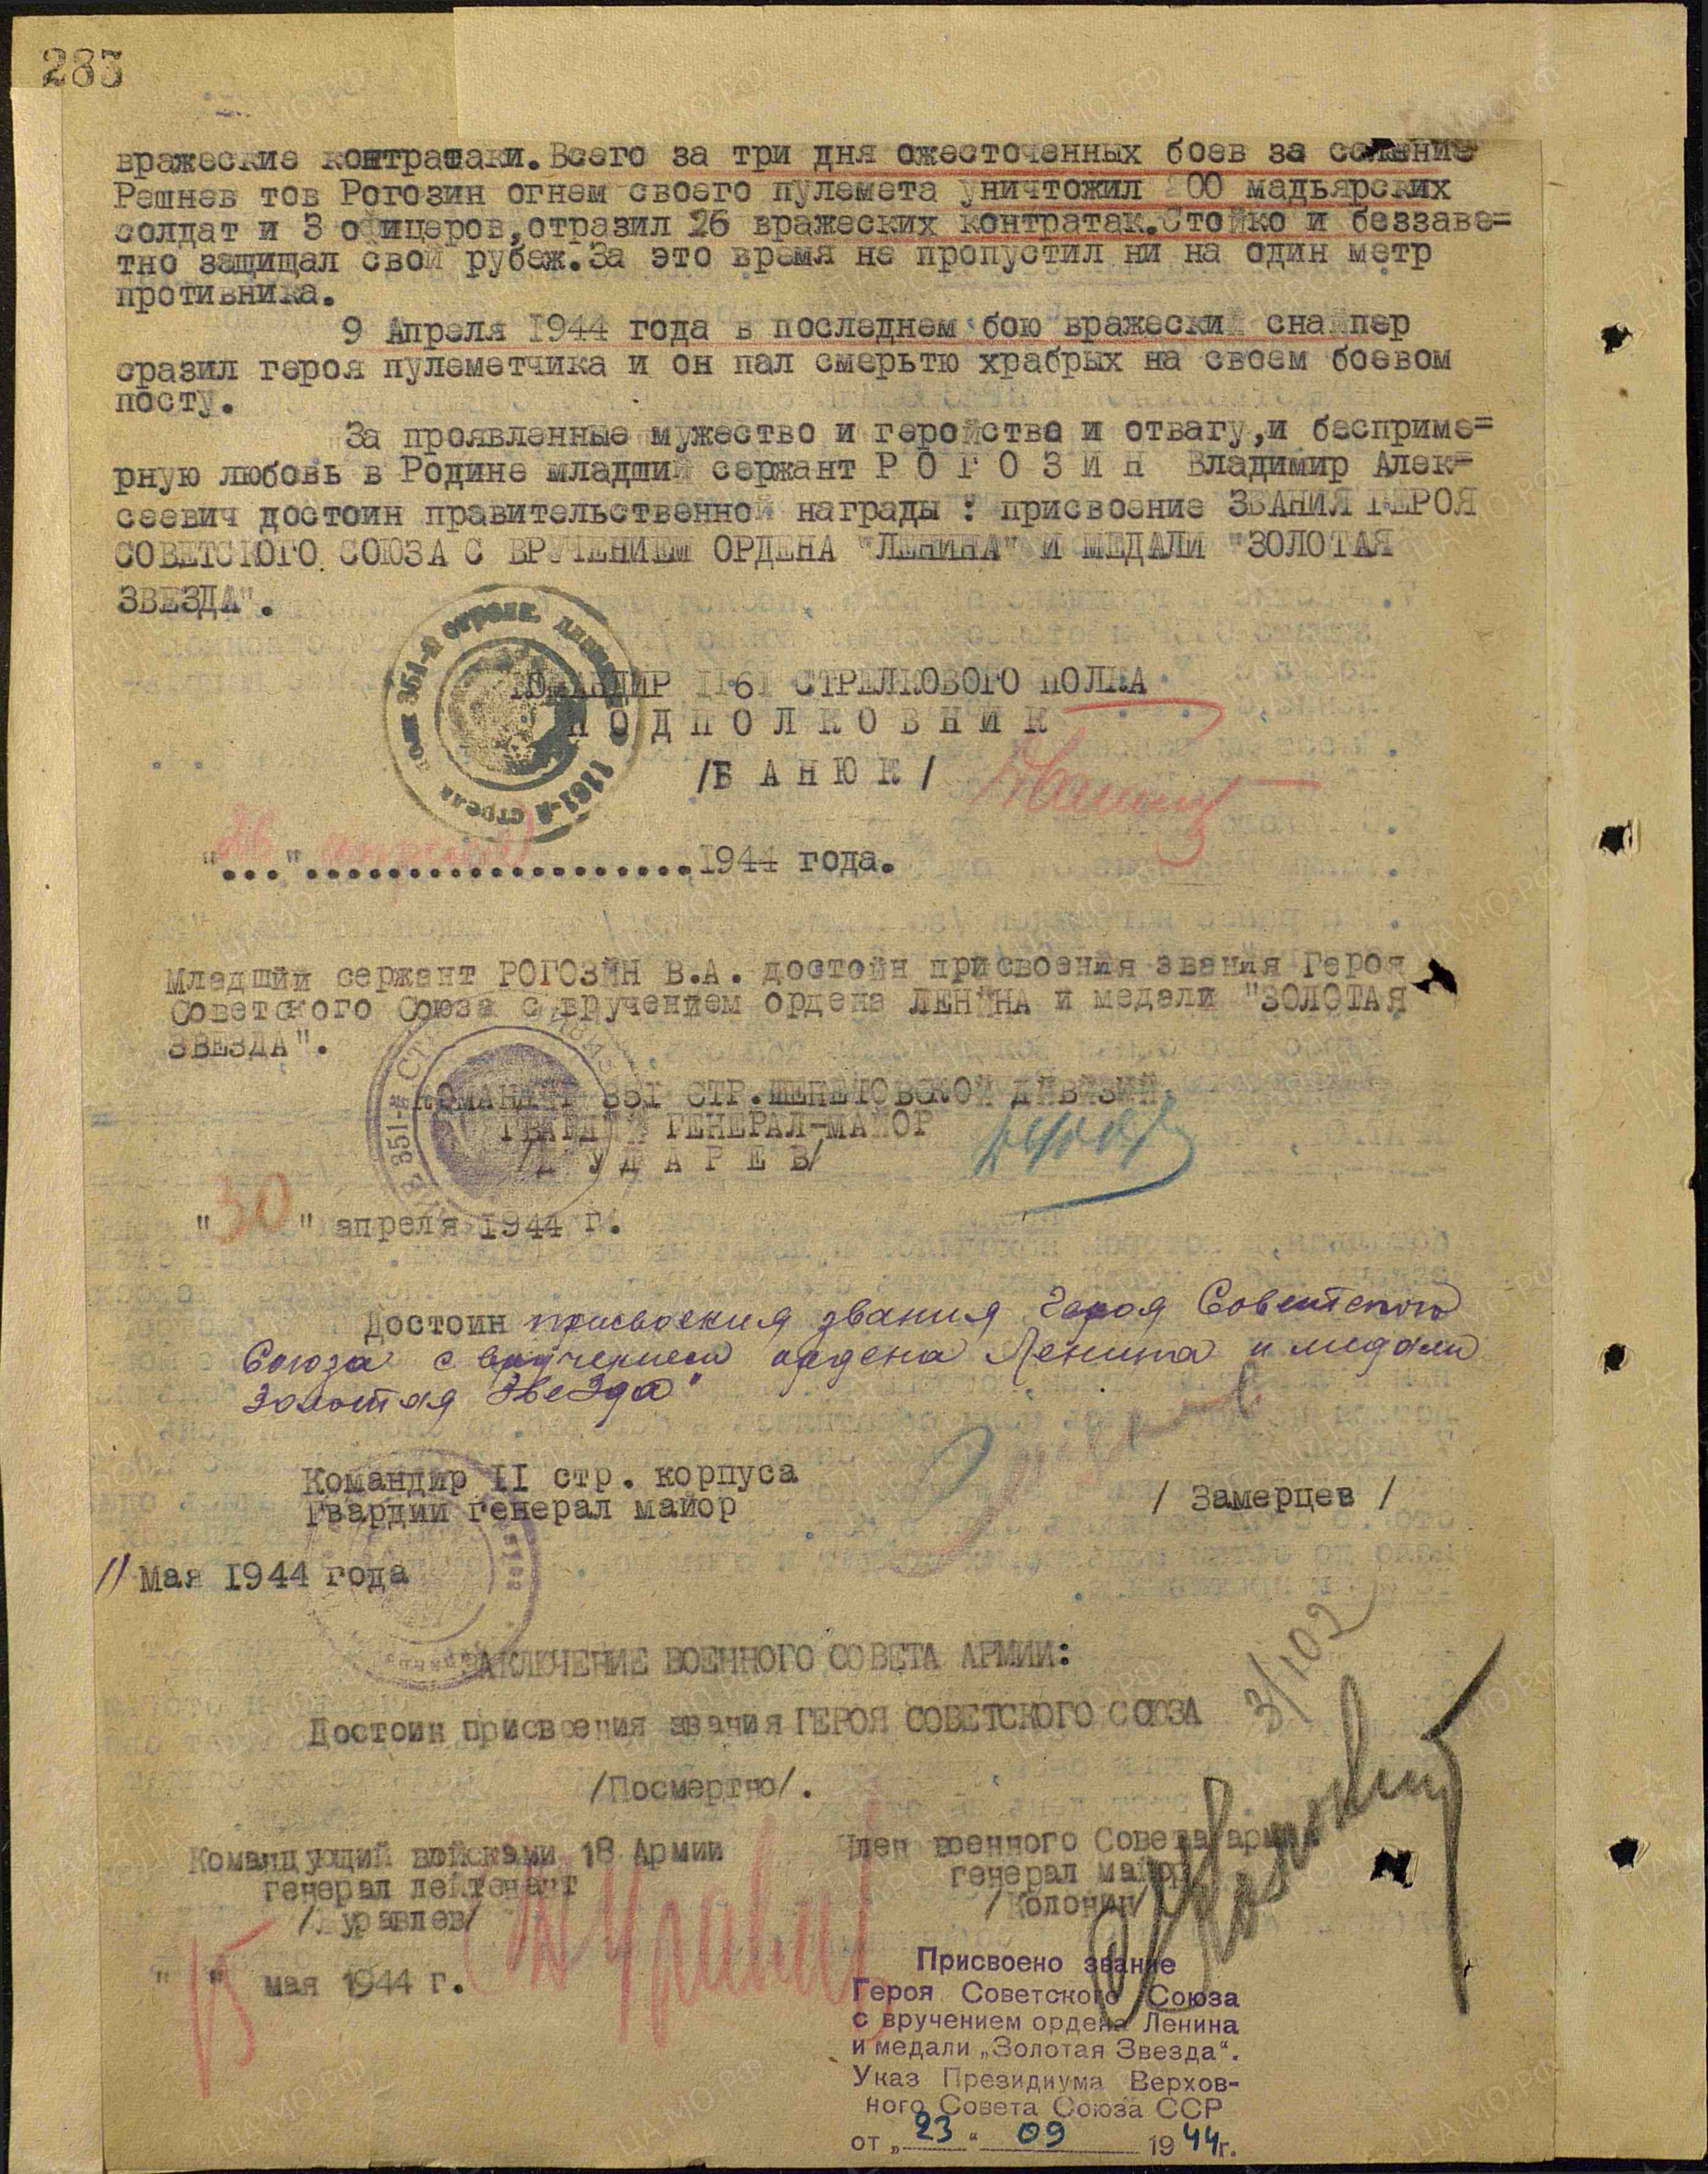 283
вражеские контратаки.Всего за три дня ожесточенных боев за селение
Решнев тов Рогозин огнем своего пулемета уничтожил 200 мадьярских
солдат и 3 офицеров,отразил 26 вражеских контратак.Стойко и беззаве=
тно защищал свой рубеж.За это время не пропустил ни на один метр
противника.
9 Апреля 1944 года в последнем бою вражеский снайпер
сразил героя пулеметчика и он пал смертью храбрых на своем боевом
посту.
За проявленные мужество и геройство и отвагу,и бесприме=
рную любовь в Родине младший сержант Р О Г О З И Н Владимир Алек=
сеевич достоин правительственной награды : присвоение ЗВАНИЯ ГЕРОЯ
СОВЕТСКОГО СОЮЗА С ВРУЧЕНИЕМ ОРДЕНА "ЛЕНИНА" И МЕДАЛИ "ЗОЛОТАЯ
ЗВЕЗДА".
КОМАНДИР II6I СТРЕЛКОВОГО ПОЛКА
П О Д П О Л К О В Н И К
/Б А Н Ю К/
"26" апреля 1944 года.
Младший сержант РОГОЗИН В.А. достойн присвоения звания Героя
Советского Союза с вручением ордена ЛЕНИНА и медали "ЗОЛОТАЯ
ЗВЕЗДА".
КОМАНДИР 351 СТР.ШЕПЕТОВСКОЙ ДИВИЗИИ
ГВАРДИИ ГЕНЕРАЛ-МАЙОР
/Д У Д А Р Е В/
"30" апреля 1944 г.
Достоин присвоения звания Героя Советского
Союза с вручением ордена Ленина и медали
Золотая Звезда"
Командир II стр. корпуса
Гвардии генерал майор / Замерцев /
11 Мая 1944 года
3/102
ЗАКЛЮЧЕНИЕ ВОЕННОГО СОВЕТА АРМИИ:
Достоин присвоения звания ГЕРОЯ СОВЕТСКОГО СОЮЗА
/Посмертно/.
Командующий войсками 18 Армии Член военного Совета армии
генерал лейтенант генерал майор
/Журавлев/ /Колонин/
"15" мая 1944 г.
Присвоено звание
Героя Советского Союза
с вручением ордена Ленина
и медали „Золотая Звезда“.
Указ Президиума Верхов-
ного Совета Союза ССР
от „23“ 09 1944г.